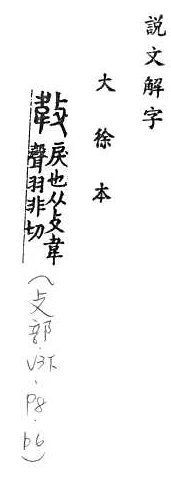 説文解字
大徐本
𢾁戾也从攴韋
聲羽非切
(攴部.V3下.P8.b6)